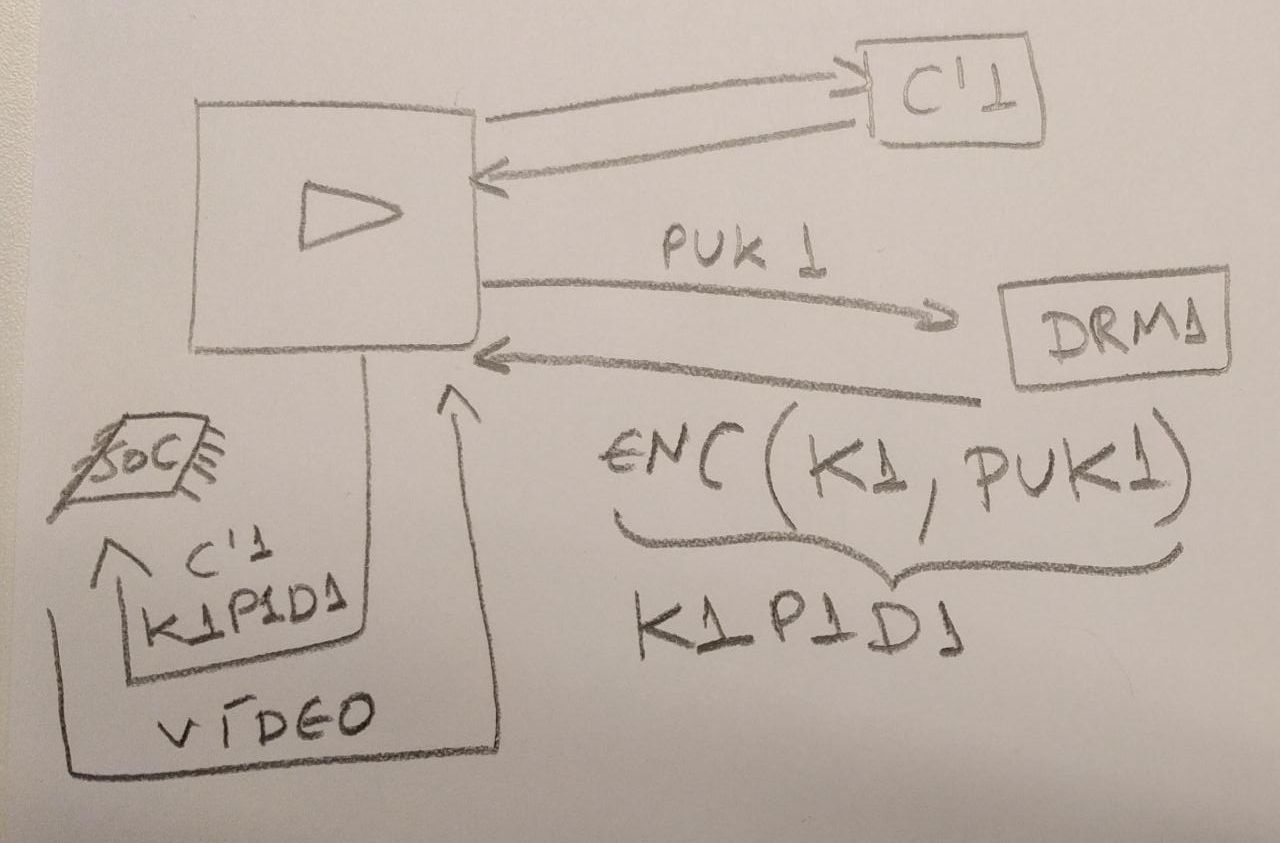 C'1
PUK 1
DRM1
ENC (K1, PUK1)
K1P1D1
SOC
C'1
K1P1D1
VÍDEO